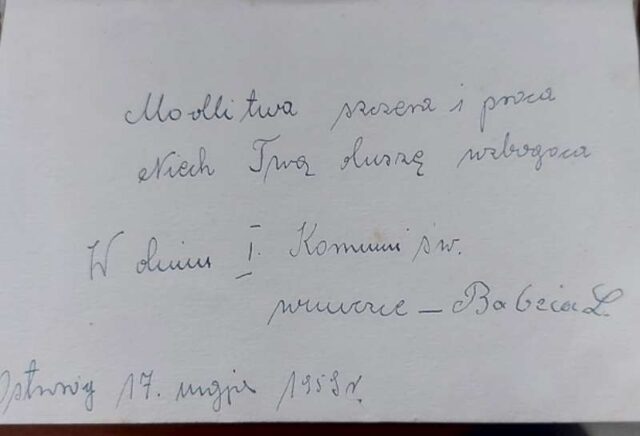 Modlitwa szczera i praca
Niech Twą duszę wzbogaca
W dniu I. Komuni św.
wnuczce – Babcia L.
17. maja 1959 r.